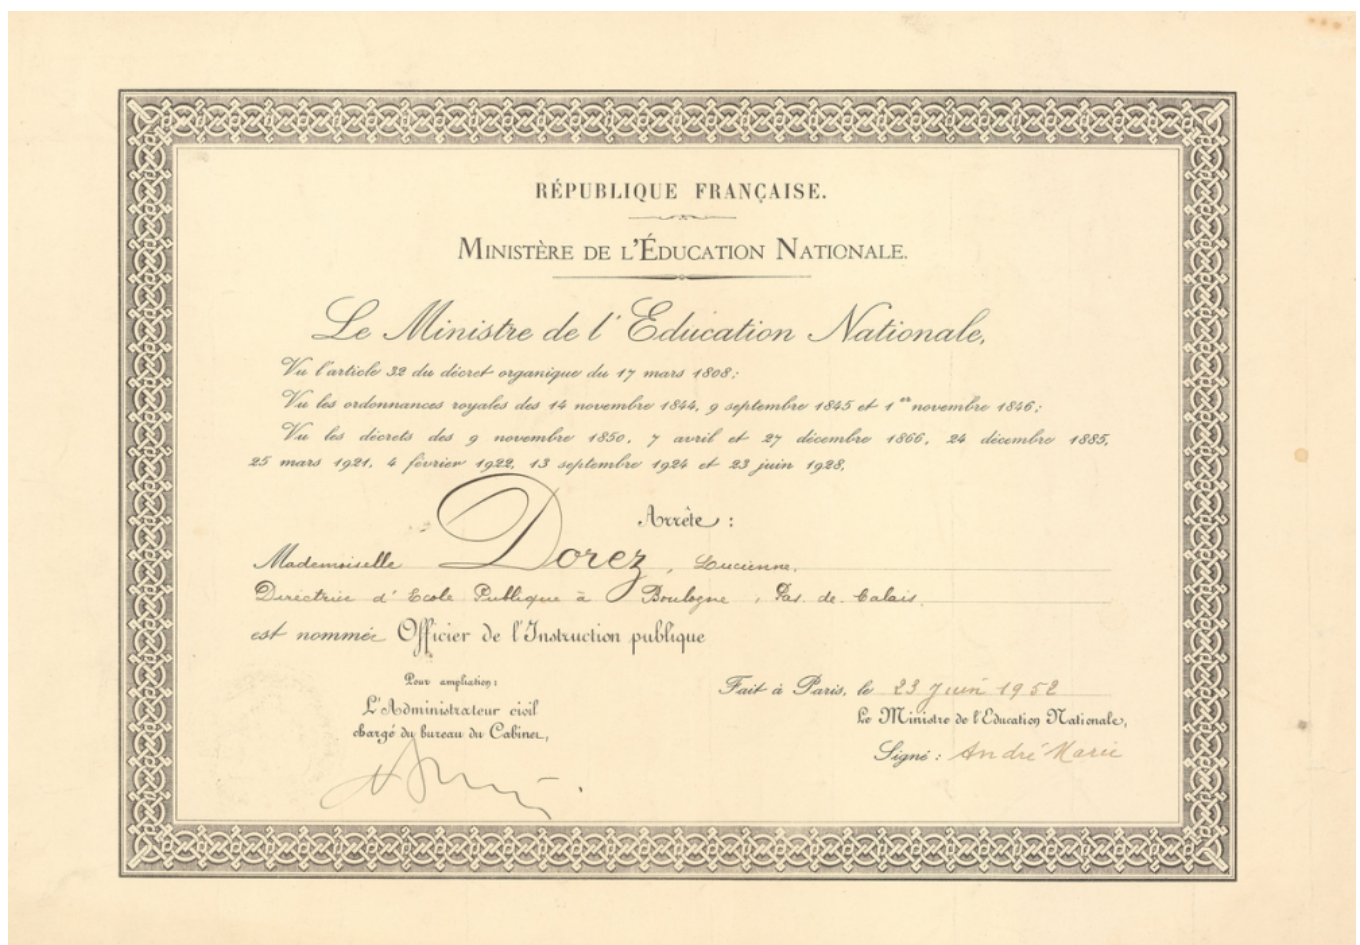 RÉPUBLIQUE FRANÇAISE.
MINISTÈRE DE L'ÉDUCATION NATIONALE.
Le Ministre de l'Education Nationale,
Vu l'article 32 du décret organique du 17 mars 1808;
Vu les ordonnances royales des 14 novembre 1844, 9 septembre 1845 et 1er novembre 1846;
Vu les décrets des 9 novembre 1850, 7 avril et 27 décembre 1866, 24 décembre 1885,
25 mars 1921, 4 février 1922, 13 septembre 1924 et 23 juin 1928,
Arrête :
Mademoiselle Dorez, Lucienne.
Directrice d'Ecole Publique à Boulogne, Pas. de. Calais.
est nommée Officier de l'Instruction publique
Pour ampliation:
L'Administrateur civil
chargé du bureau du Cabinet,
Fait à Paris, le 23 Juin 1952
Le Ministre de l'Education Nationale,
Signé : André Marie